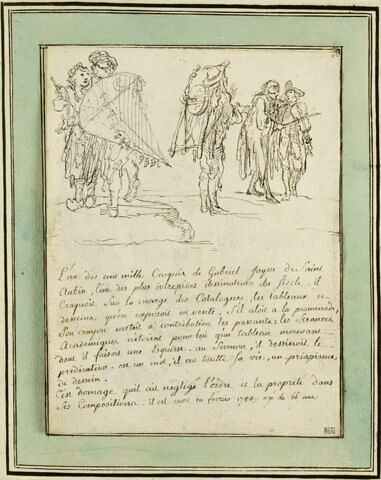 L'un des cent mille Croquis de Gabriel Jaque de Saint
Aubin, l'un des plus intrepides dessinateurs du Siecle. il
Croquoit. Sur la marge des Catalogues, les tableaux et
desseins qu'on exposoit en vente, S'il aloit a la promenade,
Son crayon metoit à contribution les passants, les Seances
Academiques n'etoient pour lui qu'un tableau mouvant
dont il faisoit une Esquisse. au Sermon, il dessinoit le
prédicateur. en un mot, il eut toutte sa vie, un priapisme
de dessin.
C'est domage qu'il eut negligé l'ordre et la propreté dans
Ses Compositions. il est mort en fevrier 1780 agé de 56 ans